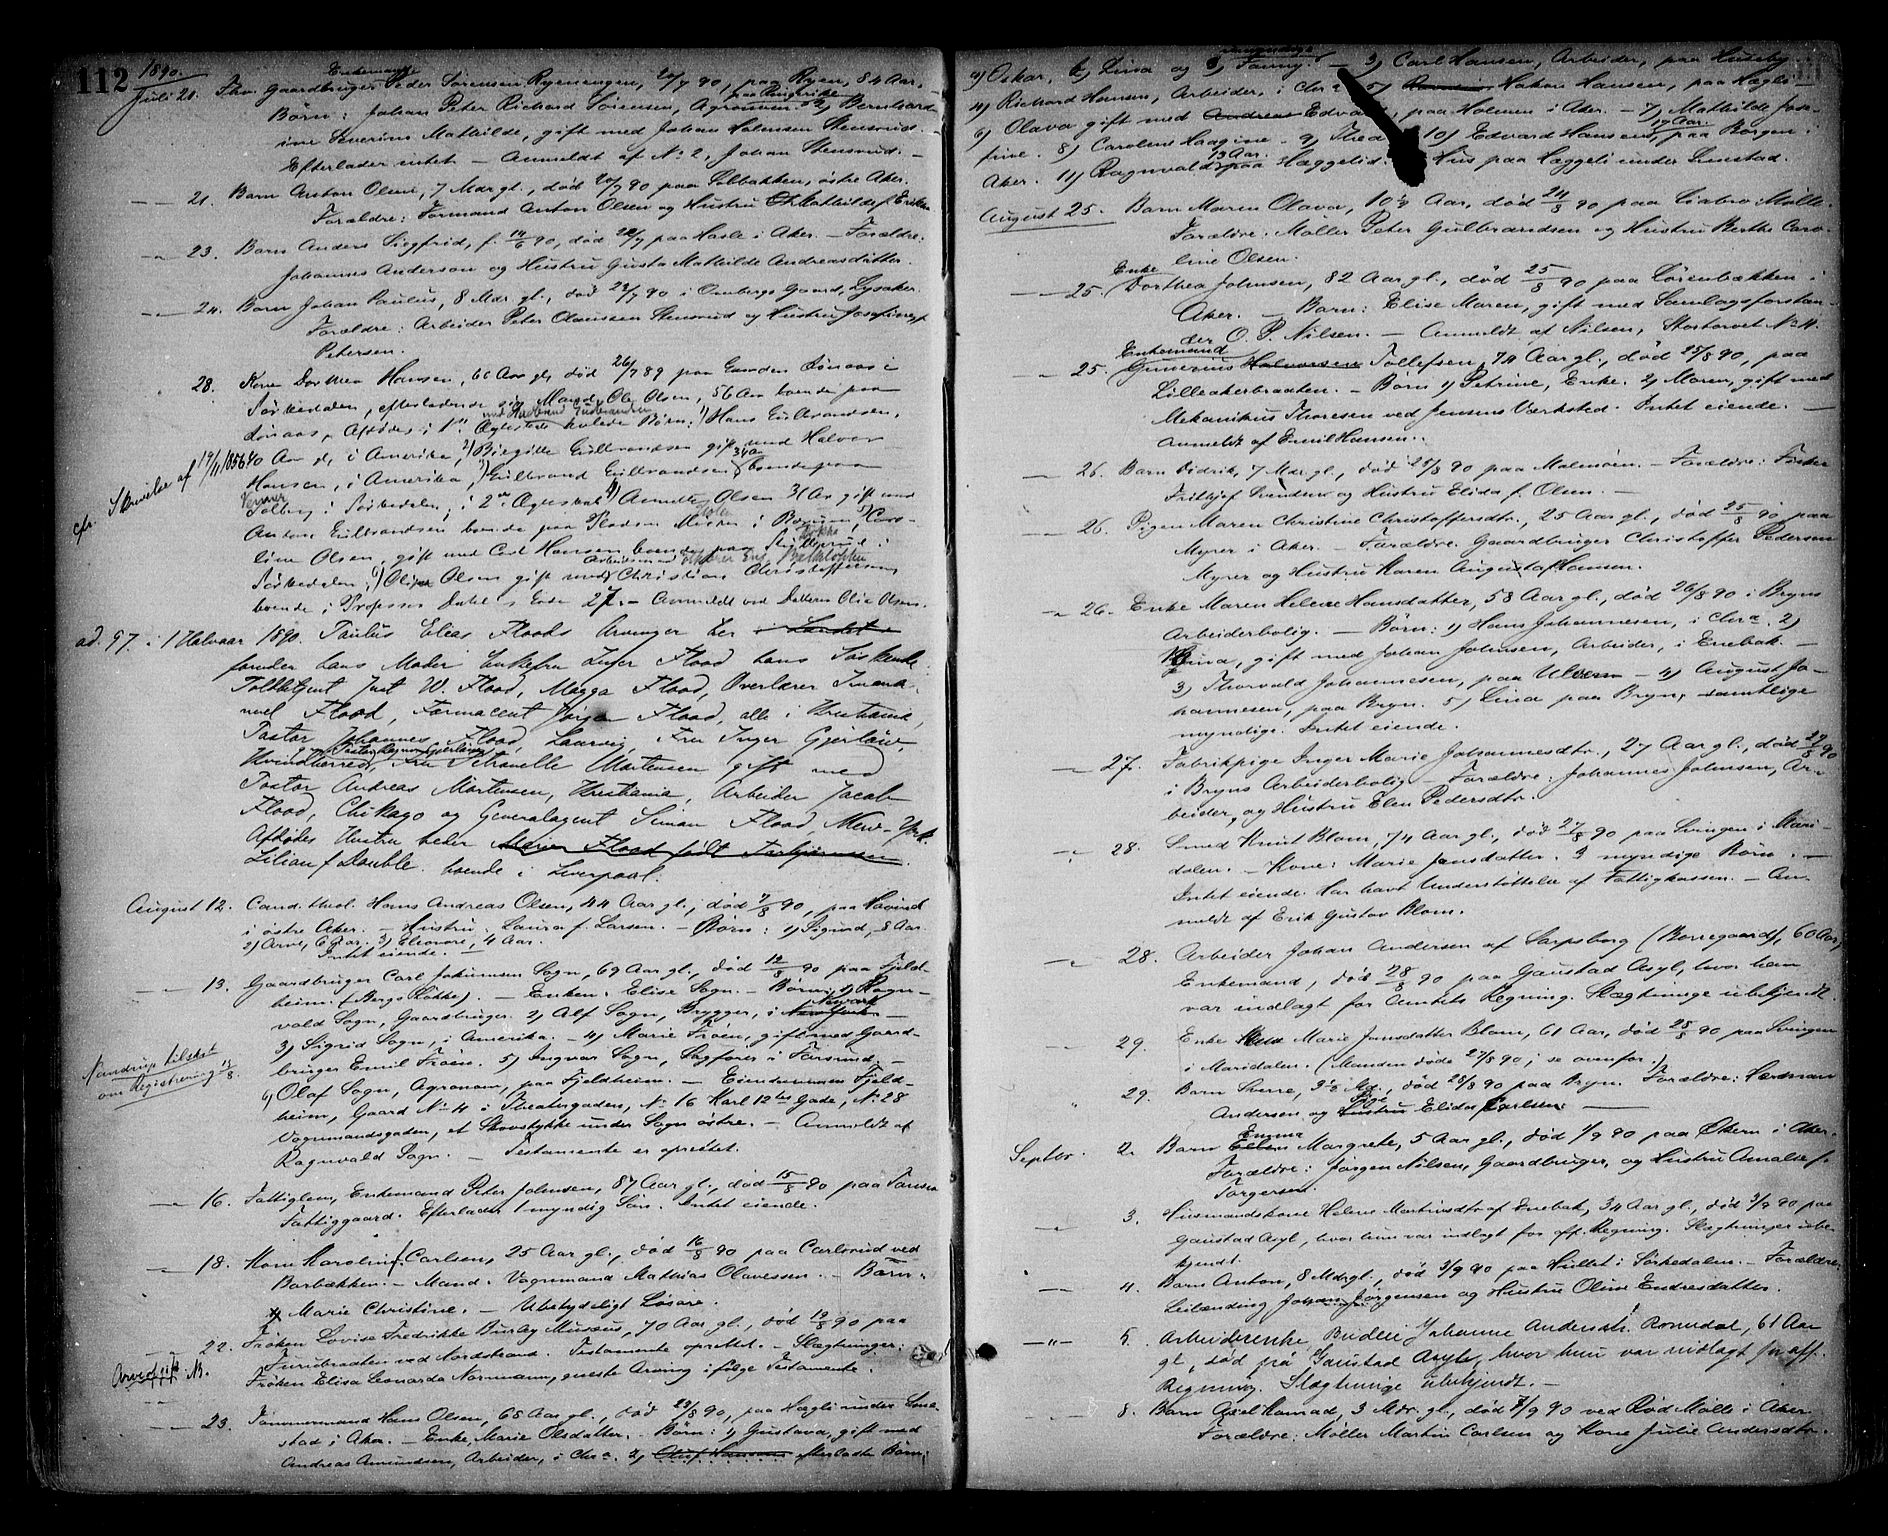 112
1890.
Enkemand
Juli 21. Fhv. Gaardbruger Peder Sørensen Ryeneengen, 20/7 90, paa Ryen, 84 Aar,
paa Ringerike
Børn: Johan Peter Richard Sørensen, Agronom. 2) Bernhard
ine Severine Mathilde, gift med Johan Holmsen Stensrud.
Efterlader intet — Anmeldt af No 2, Johan Stensrud. —
— 21. Barn Anton Olsen, 7 Mdr gl., død 20/7 90 paa Solbakken, østre Aker.
Forældre: Formand Anton Olsen og Hustru Mathilde f. Eriksen
— 23. Barn Anders Sigfrid, f. 14/6 90, død 22/7 paa Hasle i Aker. — Forældre:
Johannes Anderson og Hustru Gusta Mathilde Andreasdatter.
— 24. Barn Johan Paulus, 8 Mdr gl., død 23/7 90 i Ombergs Gaard, Lysaker.
Forældre: Arbeider Peter Olaussen Stensrud og Hustru Josefine f.
Petersen.
28. Kone Dorthea Hansen, 66 Aar gl, død 26/7 89 paa Gaarden Lønaas i
Sørkedalen, efterladende sig Mand Ole Olsen, 56 Aar boende paa
med Gulbrand Gulbrandsen
Lønaas, Afdødes i 1ste Ægteskab avlede Børn: 1) Hans Gulbrandsen,
cfr. Skrivelse af 17/11 1856
40 Aar gl, i Amerika, 2) Birgitte Gulbrandsen gift med Halvor
34 Aar
Hansen, i Amerika, 3) Gulbrand Gulbrandsen boende paa
i Sørkedalen; i 2det Ægteskab 4) Annette Olsen 31 Aar gift med
Anton Gulbrandsen boende paa Pladsen i Bærum, 5) Caro-
line Olsen, gift med Carl Hansen boende paa i
Arbeidsmand
Sørkedalen; Olsen gift med Christian Christoffersen
boende i Professor Dahls Enke 27. — Anmeldt ved Datteren Olia Olsen.
ad. 97. i 1 Halvaar 1890. Paulus Elias Floods Arvinger her i Landet
foruden hans Moder Enkefru Inger Flood hans Søskende
Toldbetjent Just W. Flood, Magga Flood, Overlærer Imma-
nuel Flood, Farmaceut Jørgen Flood, alle i Kristiania,
Pastor Johannes Flood, Laurvig, Fru Inger Gjerløw,
Kvindherred, Fru Petronelle Mortensen gift med
Pastor Andreas Mortensen, Kristiania, Arbeider Jacob
Flood, Chikago og Generalagent Simon Flood, New-York.
Afdødes Hustru heder Marie Flood født Torbjørnsen
Lilian f. Double. boende i Liverpool.
August 12. Cand. theol. Hans Andreas Olsen, 44 Aar gl., død 9/8 90, paa Hovind
i østre Aker. — Hustru: Laura f. Larsen. — Børn: 1) Sigurd, 8 Aar.
2) Arne, 6 Aar. 3) Eleonore, 4 Aar.
Intet eiende. —
— 13. Gaardbruger Carl Johannsen Sogn, 69 Aar gl., død 12/8 90 paa Fjeld-
heim (Bergs Løkke). — Enken: Elise Sogn. — Børn: 1) Ragn-
Newark
vald Sogn, Gaardbruger. 2) Alf Sogn, Brygger, i New York —
3) Sigrid Sogn, i Amerika. — 4) Marie Frøen, gift med Gaard-
Nandrup tilskrt
om Registrering 13/8.
bruger Emil Frøen. 5) Ingvar Sogn, Sagfører i Farsund. —
6) Olaf Sogn, Agronom, paa Fjeldheim. — Eiendommen Fjeld-
heim, Gaard No 4 i Theatergaden, No 16 Karl 12tes Gade, No 28
Vognmandsgaden, et Skovstykke under Sogn østre. — Anmeldt af
Ragnvald Sogn. — Testamente er oprettet.
— 16. Fattiglem, Enkemand Peter Johnsen, 87 Aar gl., død 15/8 90 paa
Fattiggaard. Efterlader 1 myndig Søn. Intet eiende.
— 18. Kone Karoline f. Carlsen, 25 Aar gl., død 16/8 90 paa Carlsrud ved
Barbækken. — Mand: Vognmand Mathias Olavessen. — Børn:
Marie Christine. — Ubetydeligt Løsøre.
— 22. Frøken Lovise Fredrikke Burby Musæus, 70 Aar gl., død 19/8 90 paa
Furubraaten ved Nordstrand. Testamente oprettet. — Slægtninger:
Frøken Elisa Leonarda Normann, eneste Arving ifølge Testamente.
— 23. Tømmermand Hans Olsen, 65 Aar gl., død 23/8 90, paa Hægli under Line-
stad i Aker. — Enke, Marie Olsdatter. Børn: 1) Gustava, gift med
Andreas Amundsen, Arbeider, i Chra. 2) Oluf Hansens efterladte Børn:
myndige
a) Oskar, b) Lina og c) Fanny. — 3) Carl Hansen, Arbeider, paa Huseby
4) Richard Hansen, Arbeider, i Chra 5) Hakon Hansen, paa Hægli
6) Olava gift med Andreas Edvard, paa Holmen i Aker. — 7) Mathilde Jose-
17 Aar.
fine. 8) Caroline Haagine 9) 10) Edvard Hansen, paa Borgen i
13 Aar.
Aker. 11) Ragnvald paa Hæggelid. Hus paa Hæggeli under Linestad.
August 25. Barn Maren Olava, 10½ Aar, død 24/8 90 paa Liabro Mølle.
Forældre: Møller Peter Gulbrandsen og Hustru Berthe Caro-
line Olsen.
Enke
— 25. Dorthea Johnsen, 82 Aar gl., død 25/8 90 paa Lørenbækken i
Aker. — Barn: Elise Maren, gift med Samlagsforstan-
der O. P. Nilsen. — Anmeldt af Nilsen, Stortorvet No 11.
Enkemand
— 25. Gunerius Halvorsen Tollefsen, 74 Aar gl., død 25/8 90, paa
Lilleakerbraaten. — Børn 1) Petrine, Enke. 2) Maren, gift med
Mekanikus Thoresen ved Jensens Værksted. Intet eiende. —
Anmeldt af Emil Hansen.
— 26. Barn Didrik, 7 Mdr. gl., død 25/8 90 paa Malmøen. — Forældre: Fisker
Fridtjof Svendsen og Hustru Elida f. Olsen. —
— 26. Pigen Maren Christine Christoffersdtr., 25 Aar gl., død 25/8 90 paa
Myrer i Aker. — Forældre: Gaardbruger Christoffer Pedersen
Myrer og Hustru Karen Augusta f. Hansen.
— 26. Enke Maren Helene Hansdatter, 58 Aar gl., død 26/8 90 i Bryns
Arbeiderbolig. — Børn: 1) Hans Johannesen, i Chra. 2)
Lina, gift med Johan Johnsen, Arbeider, i Enebak. —
3) Thorvald Johannesen, paa Ulven — 4) August Jo-
hannesen, paa Bryn. 5) Lina paa Bryn, samtlige
myndige. Intet eiende.
— 27. Fabrikpige Inger Marie Johannesdtr., 27 Aar gl., død 27/8 90
i Bryns Arbeiderbolig — Forældre: Johannes Johnsen, Ar-
beider, og Hustru Elen Pedersdtr.
— 28. Smed Knut Blom, 74 Aar gl., død 27/8 90 paa Svingen i Mari-
dalen. — Kone: Marie Jansdatter. 3 myndige Børn. —
Intet eiende. Har havt Understøttelse af Fattigkassen. — An-
meldt af Erik Gustav Blom.
— 28. Arbeider Johan Andersen af Sarpsborg (Borregaard), 60 Aar,
Enkemand, død 28/8 90 paa Gaustad Asyl, hvor han
var indlagt for Amtets Regning. Slægtninge ubekjendt.
— 29. Enke Marie Jansdatter Blom, 61 Aar, død 28/8 90 paa Svingen
i Maridalen. (Manden døde 27/8 90; se ovenfor.)
29. Barn Sverre, 3½ Md., død 28/8 90 paa Bryn. Forældre: Herman
Pige
Andersen og Hustru Elida Carlsen. —
Emma
Septbr. 2. Barn Ellen Margrete, 5 Aar gl., død 1/9 90 paa Økern i Aker.
Forældre: Jørgen Nilsen, Gaardbruger, og Hustru Amalie f.
Torgersen.
— 3. Husmandskone Helene Martinsdtr af Enebak, 34 Aar gl., død 3/9 90 paa
Gaustad Asyl, hvor hun var indlagt for off. Regning. Slægtninger ube-
kjendt.
— 4. Barn Anton, 8 Mdr gl., død 3/9 90 paa Hullet i Sørkedalen. — Forældre:
Leilænding Johan Jørgensen og Hustru Oline Endresdatter.
— 5. Arbeiderenke Johanne Andersdtr. Romedal, 61 Aar
gl., død frå Gaustad Asyl, hvor hun var indlagt for off.
Regning. Slægtninge ubekjendt. —
— 8. Barn Axel Konrad, 3 Mdr. gl., død 7/9 90 ved Rød Mølle i Aker
Forældre: Møller Martin Carlsen og Kone Julie Andersdtr.